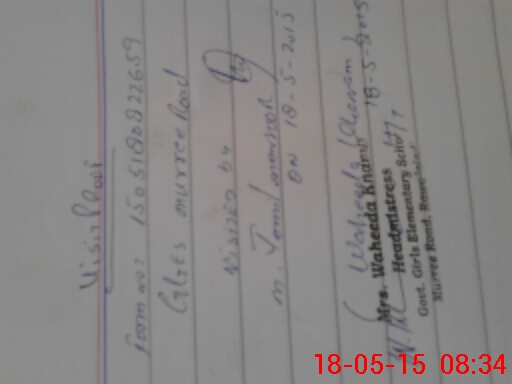 Visit Proof
Form No: 15051802 2659
GGES Murree Road
Visited by
M. Jamil
ON 18-5-2015
(Waheeda Khanam)
18-5-2015
Mrs. Waheeda Khanum
Headmistress
Govt. Girls Elementary School
Murree Road, Rawalpindi
18-05-15 08:34